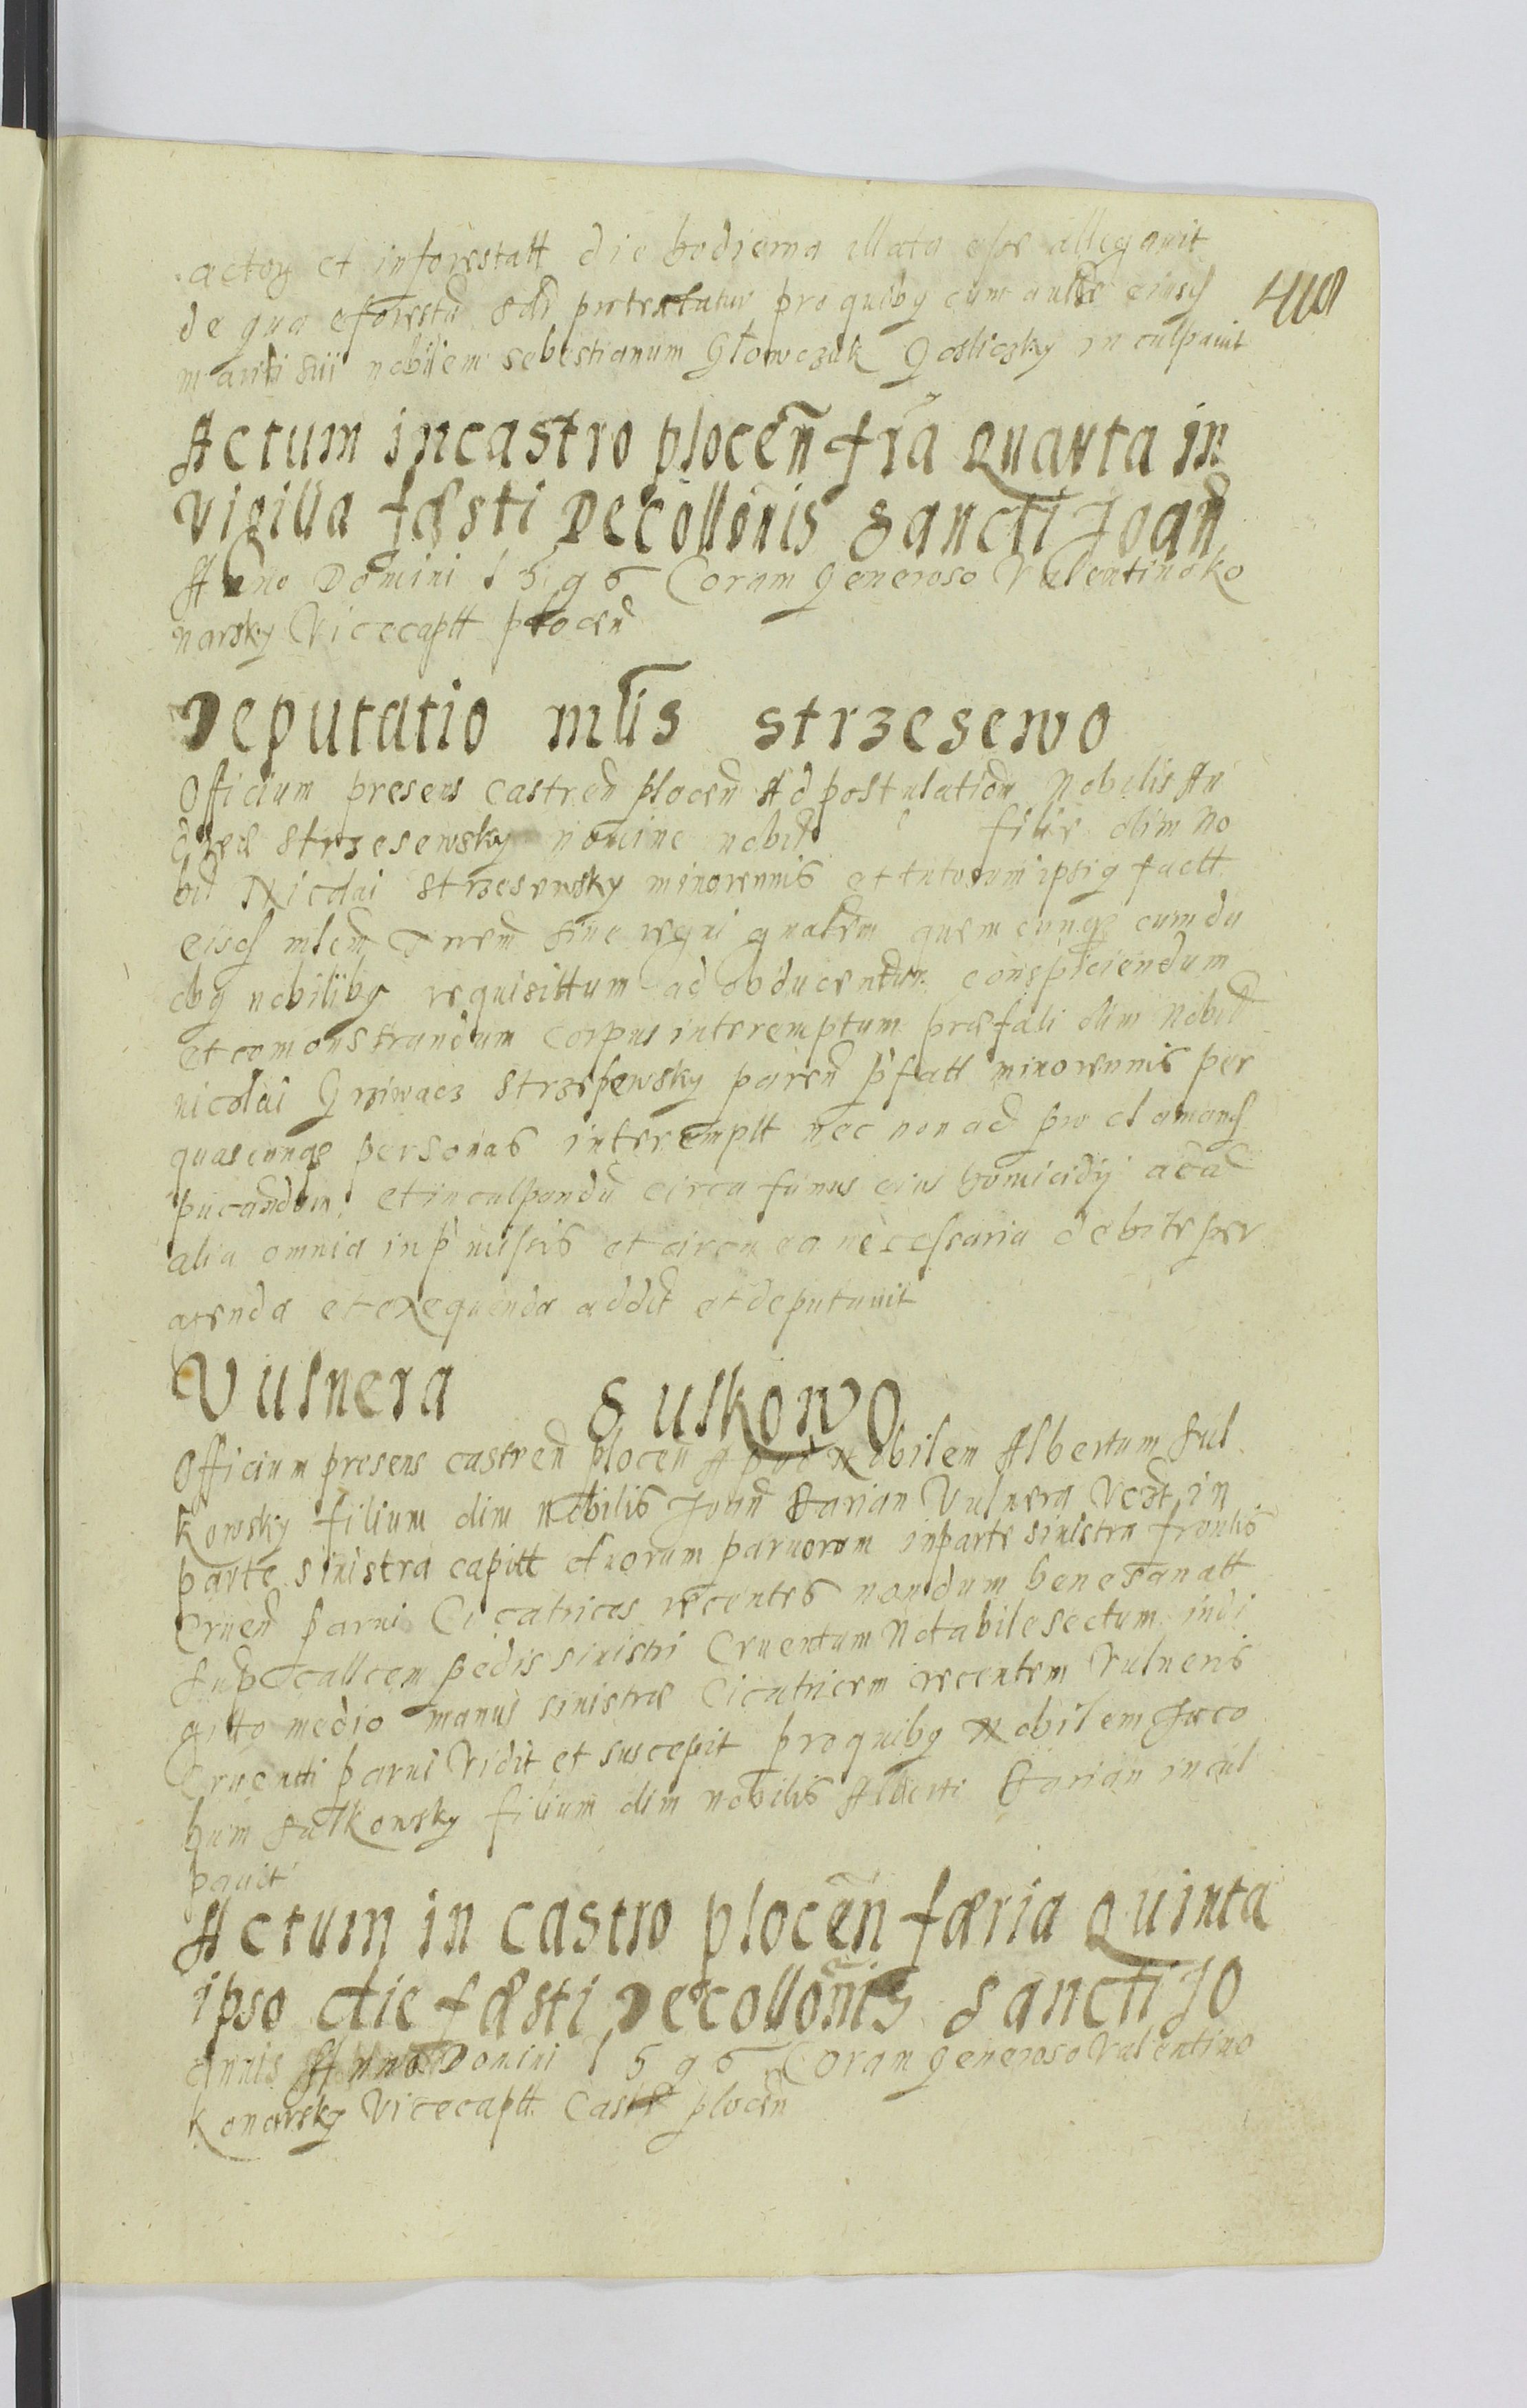 actoꝝ et inforestatt die hodierna illata esse allegavit
418
de qua eforesta͠ protestatur pro quibꝫ cum ante eiusd
mariti sui nobilem sebestianum Głowczuk Gosliczky inculpauit
Actum in castro plocen͠ fr͠ia Quarta in
vigilia fæsti Decollōnis Sancti Joan͠
Anno Domini 1596 Coram Generoso Valentino Ko
narsky Vicecaptt plocen͠
Deputatio mlīs strzesewo
Officium presens castren͠ plocen͠ Ad postulation͠ Nobilis An
drea Strzesewsky nomine nobil͠ filie olim No
bil͠ Nicolai Strzesewsky minorennis et tutorum ipsiꝫ factt
eisd mlem͠ sine regni quemcunqꝫ cum du
obꝫ nobilibꝫ requisittum ad obducendum conspiciendum
et comonstrandum Corpus interemptum præfati olim Nobil͠
nicolai Grziwacz Strzesewsky paren͠ p̄fatt minorennis per
quascunqꝫ personas interemptt nec non ad proclamand
pucandum et inculpandu͠ circa funus eius homicidij ac ad
alia omnia in p̄missis et circa ea necessaria debite per
agenda et exequenda addit et deputauit
Vulnera Sulkowo
Officium presens castren͠ plocen͠ Apud Nobilem Albertum Sul
kowsky filium olim Nobilis Joan͠ Starian Vulnera in
parte sinistra capitt duorum paruorum in parte sinistra frontis
Cruen͠ parui Cicatrices recentes nondum bene sanatt
Sup͠ callcem pedis sinistri Cruentum Notabile sectum indi
gitto medio manus sinistræ Cicatricem recentem Vulneris
Cruenti parui Vidit et suscepit pro quibꝫ Nobilem Jaco
bum Sulkowsky filium olim nobilis Alberti Starian incul
pauit
Actum in castro plocen͠ færia Quinta
ipso die fæsti Decollōnis Sancti Jo
annis Anno Domini 1596 Coram Generoso Valentino
Konarsky Vicecaptt Castr plocen͠